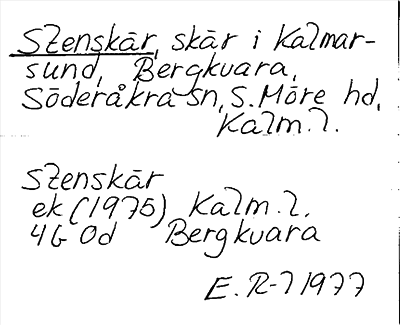 Stenskär, skär i Kalmar-
sund, Bergkvara,
Söderåkra sn, S. Möre hd,
Kalm. l.
Stenskär
ek (1975) Kalm. l.
4G 0d Bergkvara
E. R-l 1977